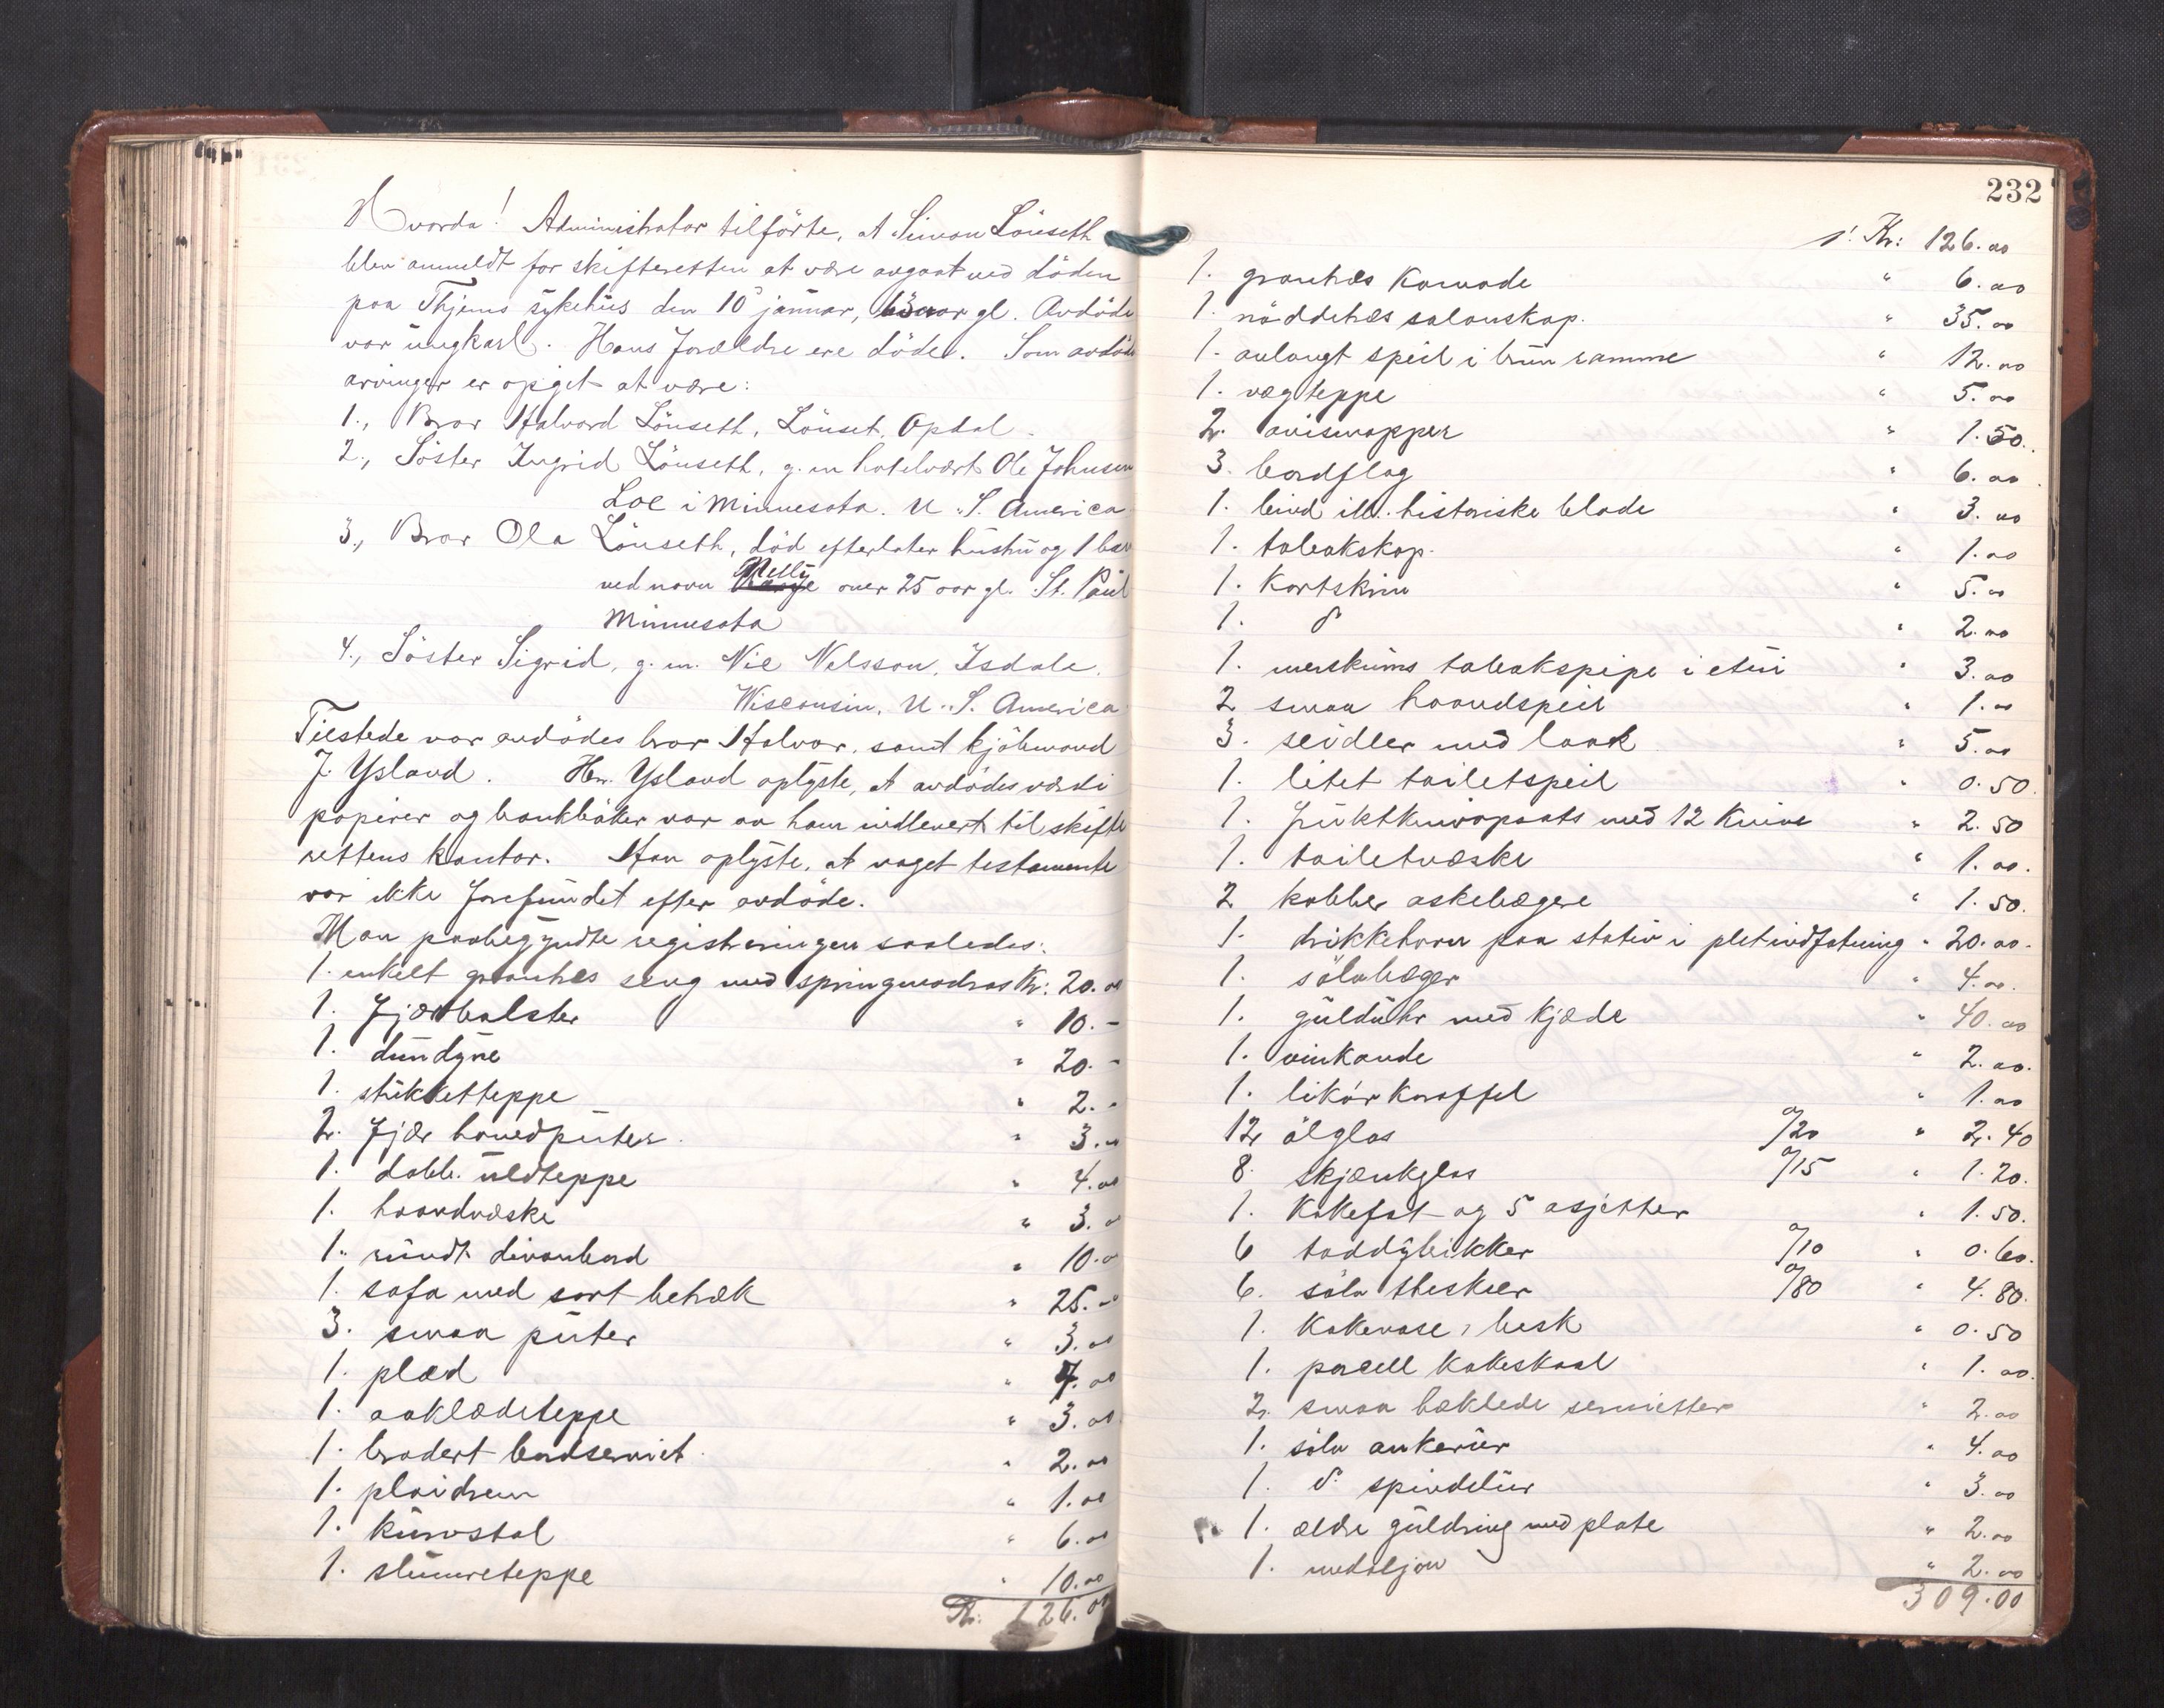 Hvorda! Administrator tilförte, at Simon Lönseth
blev anmeldt for skifteretten at være avgaat ved döden
paa Thjems sykehus den 10 januar, 63 aar gl. Avdöde
var ungkarl. Hans Forældre ere döde. Som avdödes
arvinger er opgit at være:
1., Bror Halvord Lönseth, Lönset, Opdal.
2., Söster Ingrid Lönseth, g. m. hotelvært Ole Johnsen
Loe i Minnesota. U. S. America
3., Bror Ola Lönseth, död efterlater hustru og 1 barn
ved navn Nelly over 25 aar gl. St. Paul
Minnesota
4., Söster Sigrid, g. m. Nie Nelsson, Isdale,
Wisconsin, U. S. America
Tilstede var avdödes bror Halvor, samt kjöbmand
J. Ysland. Hr. Ysland oplyste, at avdödes værdi
papirer og bankböker var av ham indlevert til skifte
rettens kontor. Han oplyste, at noget testamente
var ikke forefundet efter avdöde.
Man paabegyndte registreringen saaledes:
1. enkelt grantræs seng med springmadras Kr: 20.00
1. Fjærbolster " 10.-
1. dundyne " 20.-
1. stikketteppe " 2.-
2. Fjær hovedputer. " 3.00
1. dobb. uldteppe " 4.00
1. haandvæske " 3.00
1. rundt divanbord " 10.00
1. sofa med sort betræk " 25.00
3. smaa puter " 3.00
1. plæd " 4.00
1. aaklædeteppe " 3.00
1. brodert bordserviet. " 2.00
1. plaidrem " 1.00
1. kurvstol " 6.00
1. slumreteppe " 10.00
Kr. 126.00
232
Kr: 126.00
1. grantræs Komode " 6.00
1. nöddetræs salonskap. " 35.00
1. avlangt speil i brun ramme " 12.00
1. vægteppe " 5.00
2. avismapper " 1.50.
3. bordflag " 6.00
1. bind ill. historiske blade " 3.00
1. tobakskop. " 1.00
1. Kortskrin " 5.00
1. d " 2.00
1. merskums tobakspipe i etui " 3.00
2 smaa haandspeil " 1.00
3. seidler med laak " 5.00
1. litet toiletspeil " 0.50.
1. Fruktknivopsats med 12 Knive " 2.50
1. toiletvæske " 1.00.
2 kobber askebægere " 1.50.
1. drikkehorn paa stativ i pletindfatning " 20.00.
1. sölvbæger " 4.00.
1. gulduhr med Kjæde " 40.00
1. vinkande " 2.00.
1. likörkaraffel " 1.00
12 ölglas a/20 " 2.40
8. skjænkglas a/15 " 1.20.
1. Kakefat og 5 asjetter " 1.50.
6 toddybikker a/10 " 0.60.
6. sölv theskeer a/80 " 4.80.
1. Kakevase, besk " 0.50
1. porcell Kakeskaal " 1.00.
2. smaa hæklede servietter " 2.00
1. sölv ankerur " 4.00
1. d. spindelur " 3.00
1. ældre guldring med plate " 2.00
1. medaljon " 2.00
309.00